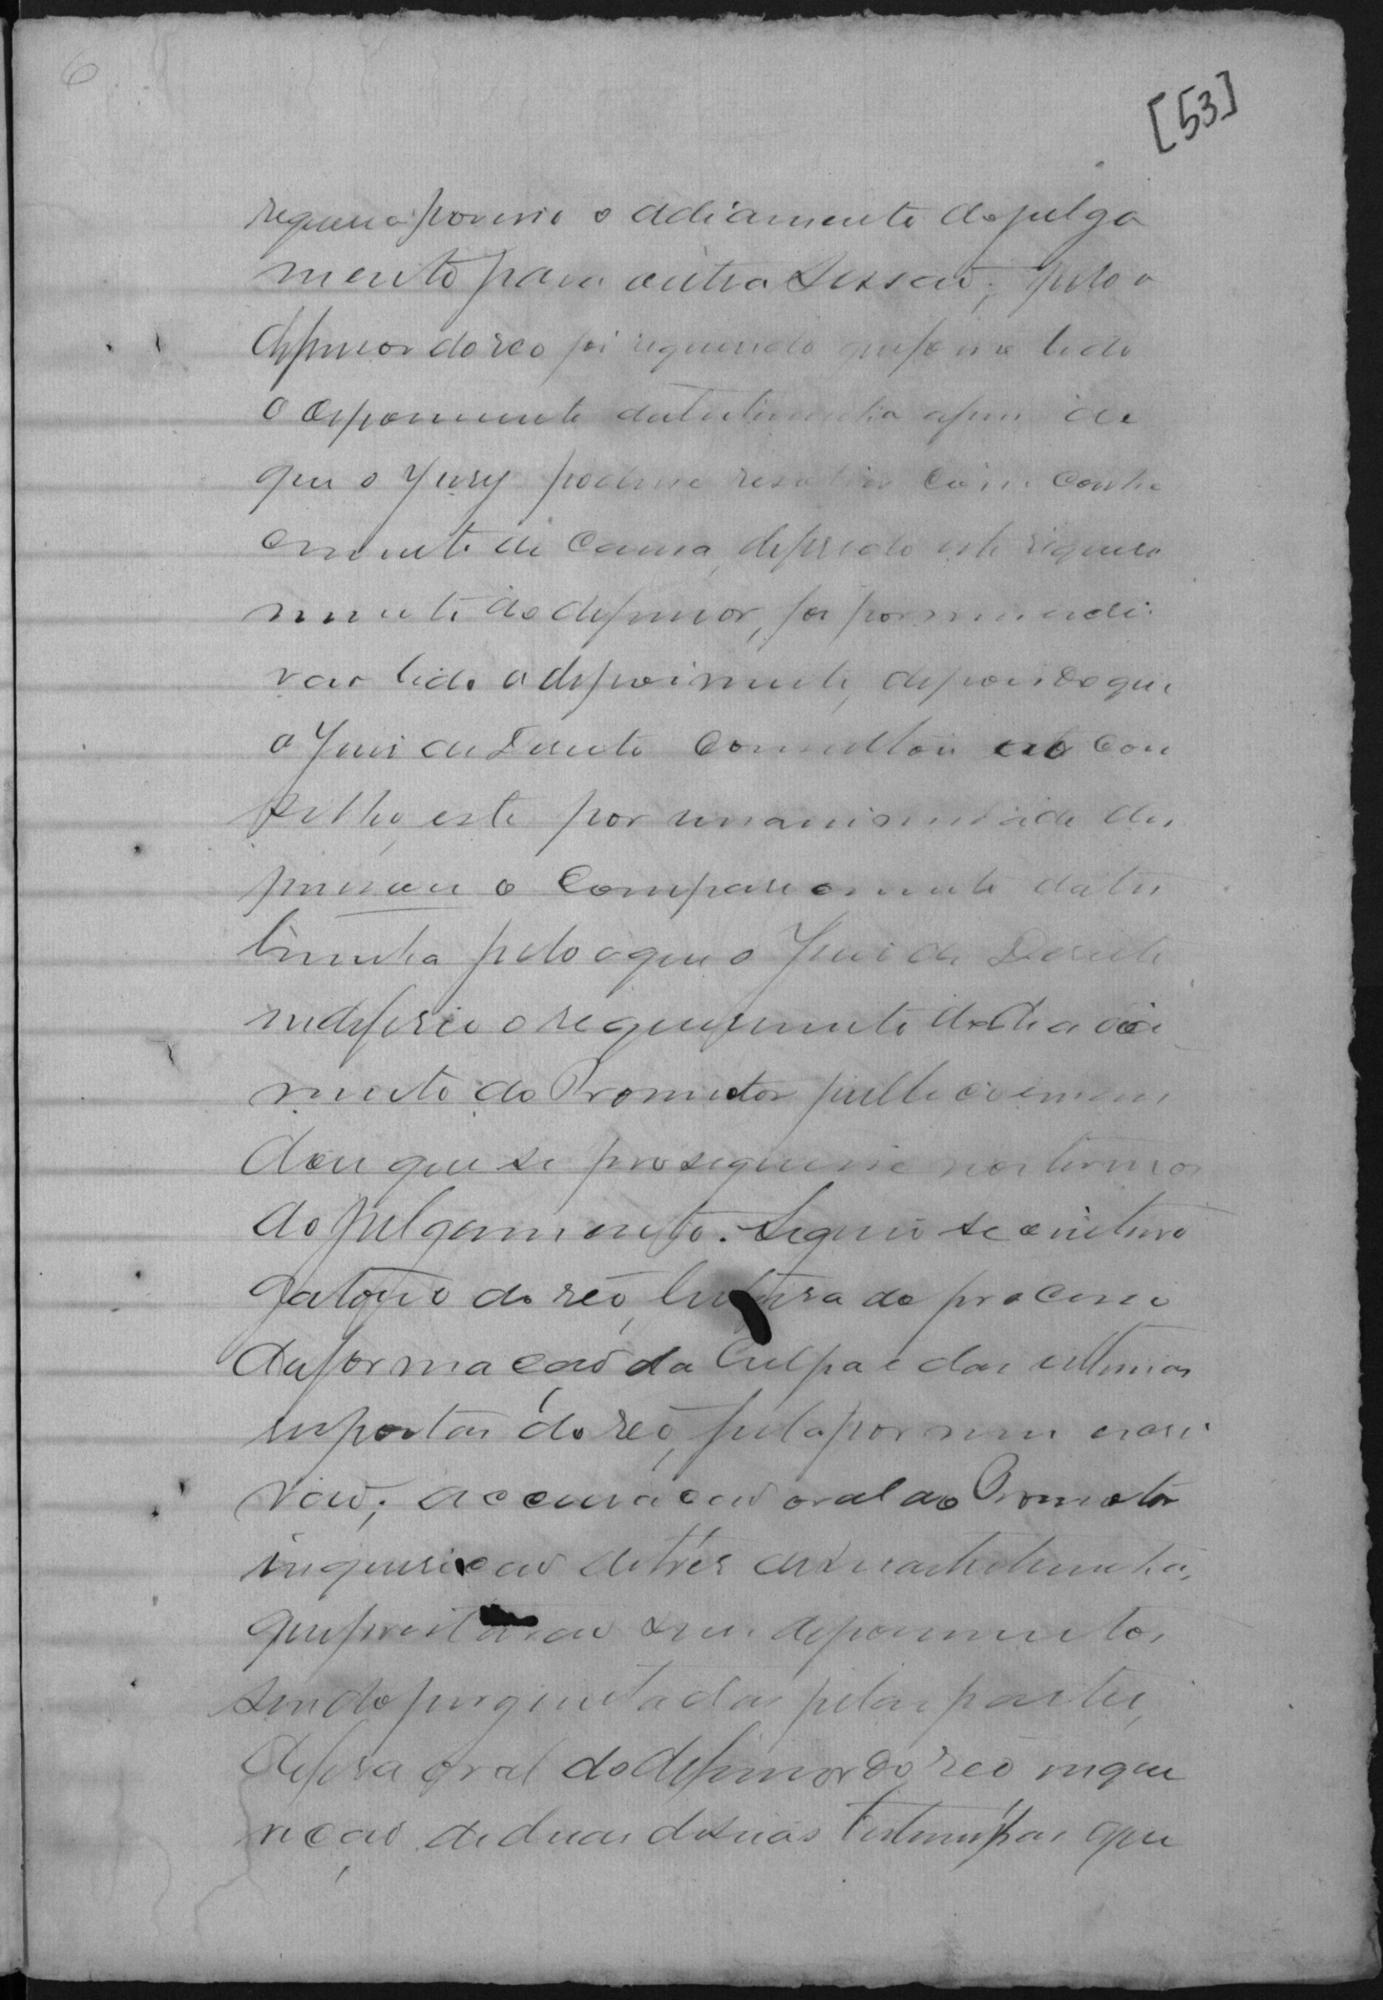 6
[53]
requeria por isso o adiamento do julga
mento para outra sessaõ; pelo
defensor do reo foi requerido que fosse lido
o depoimento da testimunha afim de
que o Jury podesse resolver com conhe
cimento de causa, deferido este requeri
mento do defensor, foi por mim escri
vaõ lido o depoimento, depois do que
o Juis de Direito consultou ao con
selho, este por unanimidade dis
pensou o comparecimento da tes
timunha pelo que o Juis de Direito
indeferio o requerimento de adia
mento do Promotor publico e man
dou que se proseguisse nos termos
do julgamento. Seguiu se o interro
gatorio do réo, leitura do processo
da formaçaõ da culpa e das ultimas
respostas do réo, feita por mim escri
vaõ; accusaçaõ oral do Promotor
inquiriçaõ de tres de suas testimunhas,
que prestaraõ seus depoimentos
sendo perguntadas pelas partes,
defesa oral do defensor do réo inqui
riçaõ de duas de suas testimunhas que